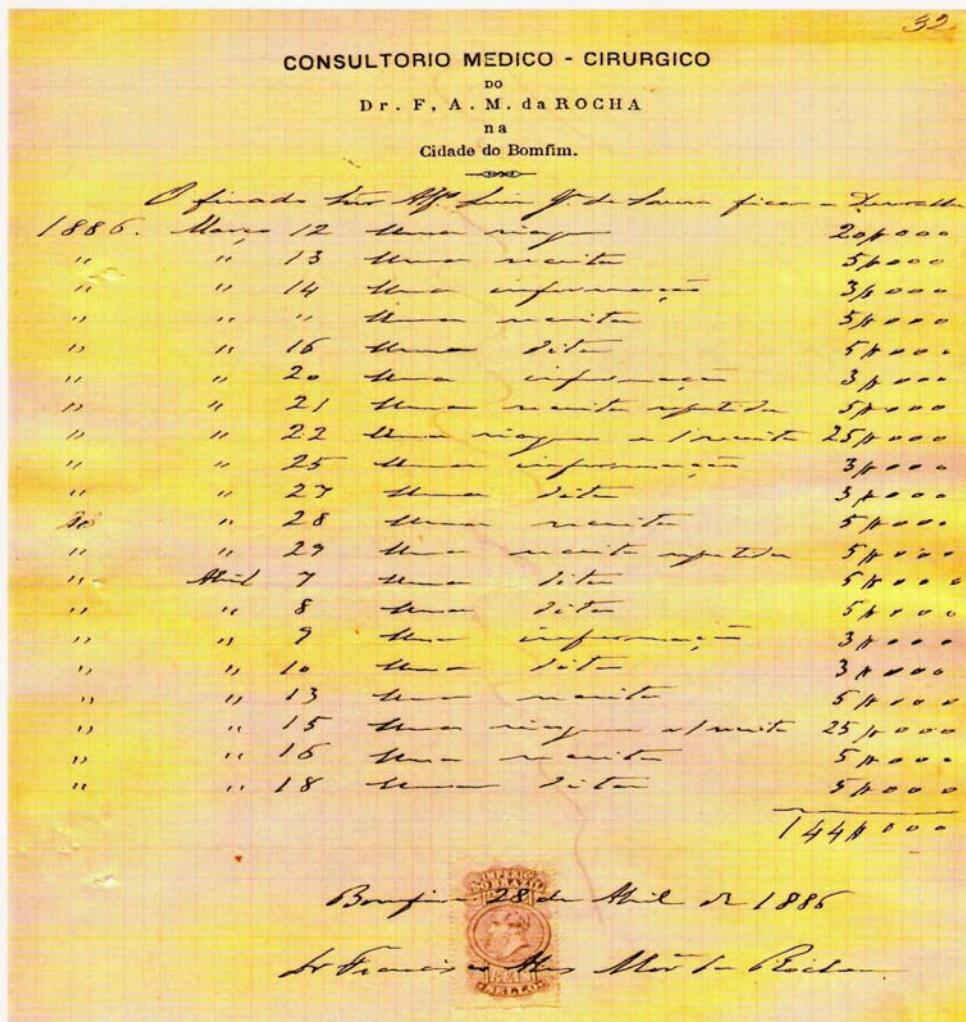 32
CONSULTORIO MEDICO - CIRURGICO
DO
Dr. F. A. M. da ROCHA
na
Cidade do Bomfim.
O finado Snr Luiz de Souza
1886. Março 12 Uma viagem 20$000
" " 13 Uma receita 5$000
" " 14 Uma informação 3$000
" " " Uma receita 5$000
" " 16 Uma dita 5$000
" " 20 Uma informação 3$000
" " 21 Uma receita repetida 5$000
" " 22 Uma viagem e 1 receita 25$000
" " 25 Uma informação 3$000
" " 27 Uma dita 3$000
" 28 Uma receita 5$000
" " 29 Uma receita repetida 5$000
" Abril 7 Uma dita 5$000
" " 8 Uma dita 5$000
" " 9 Uma informação 3$000
" " 10 Uma dita 3$000
" " 13 Uma receita 5$000
" " 15 Uma viagem e 1 receita 25$000
" " 16 Uma receita 5$000
" " 18 Uma dita 5$000
144$000
IMPERIO
DO BRAZIL
Bomfim 28 de Abril de 1886
Dr Francisco Alves da Rocha
REIS
SELLO